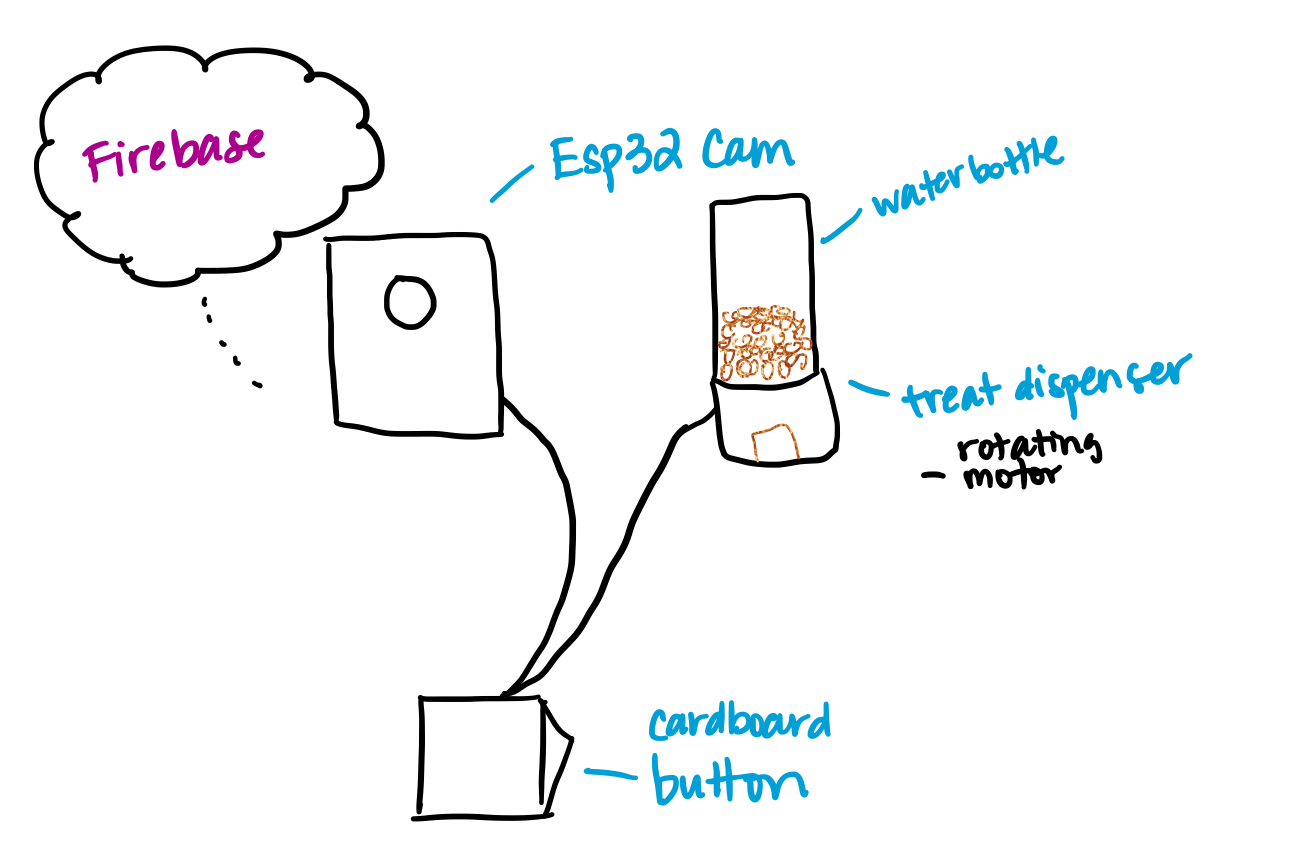 Firebase
Esp32 Cam
waterbottle
treat dispenser
rotating
- motor
cardboard
button